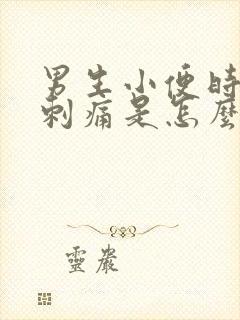 男生小便时
刺痛是怎麽
靈巖